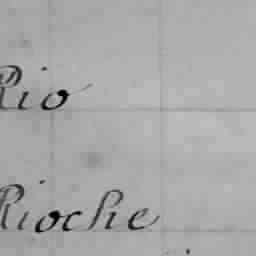 Rio
Rioche